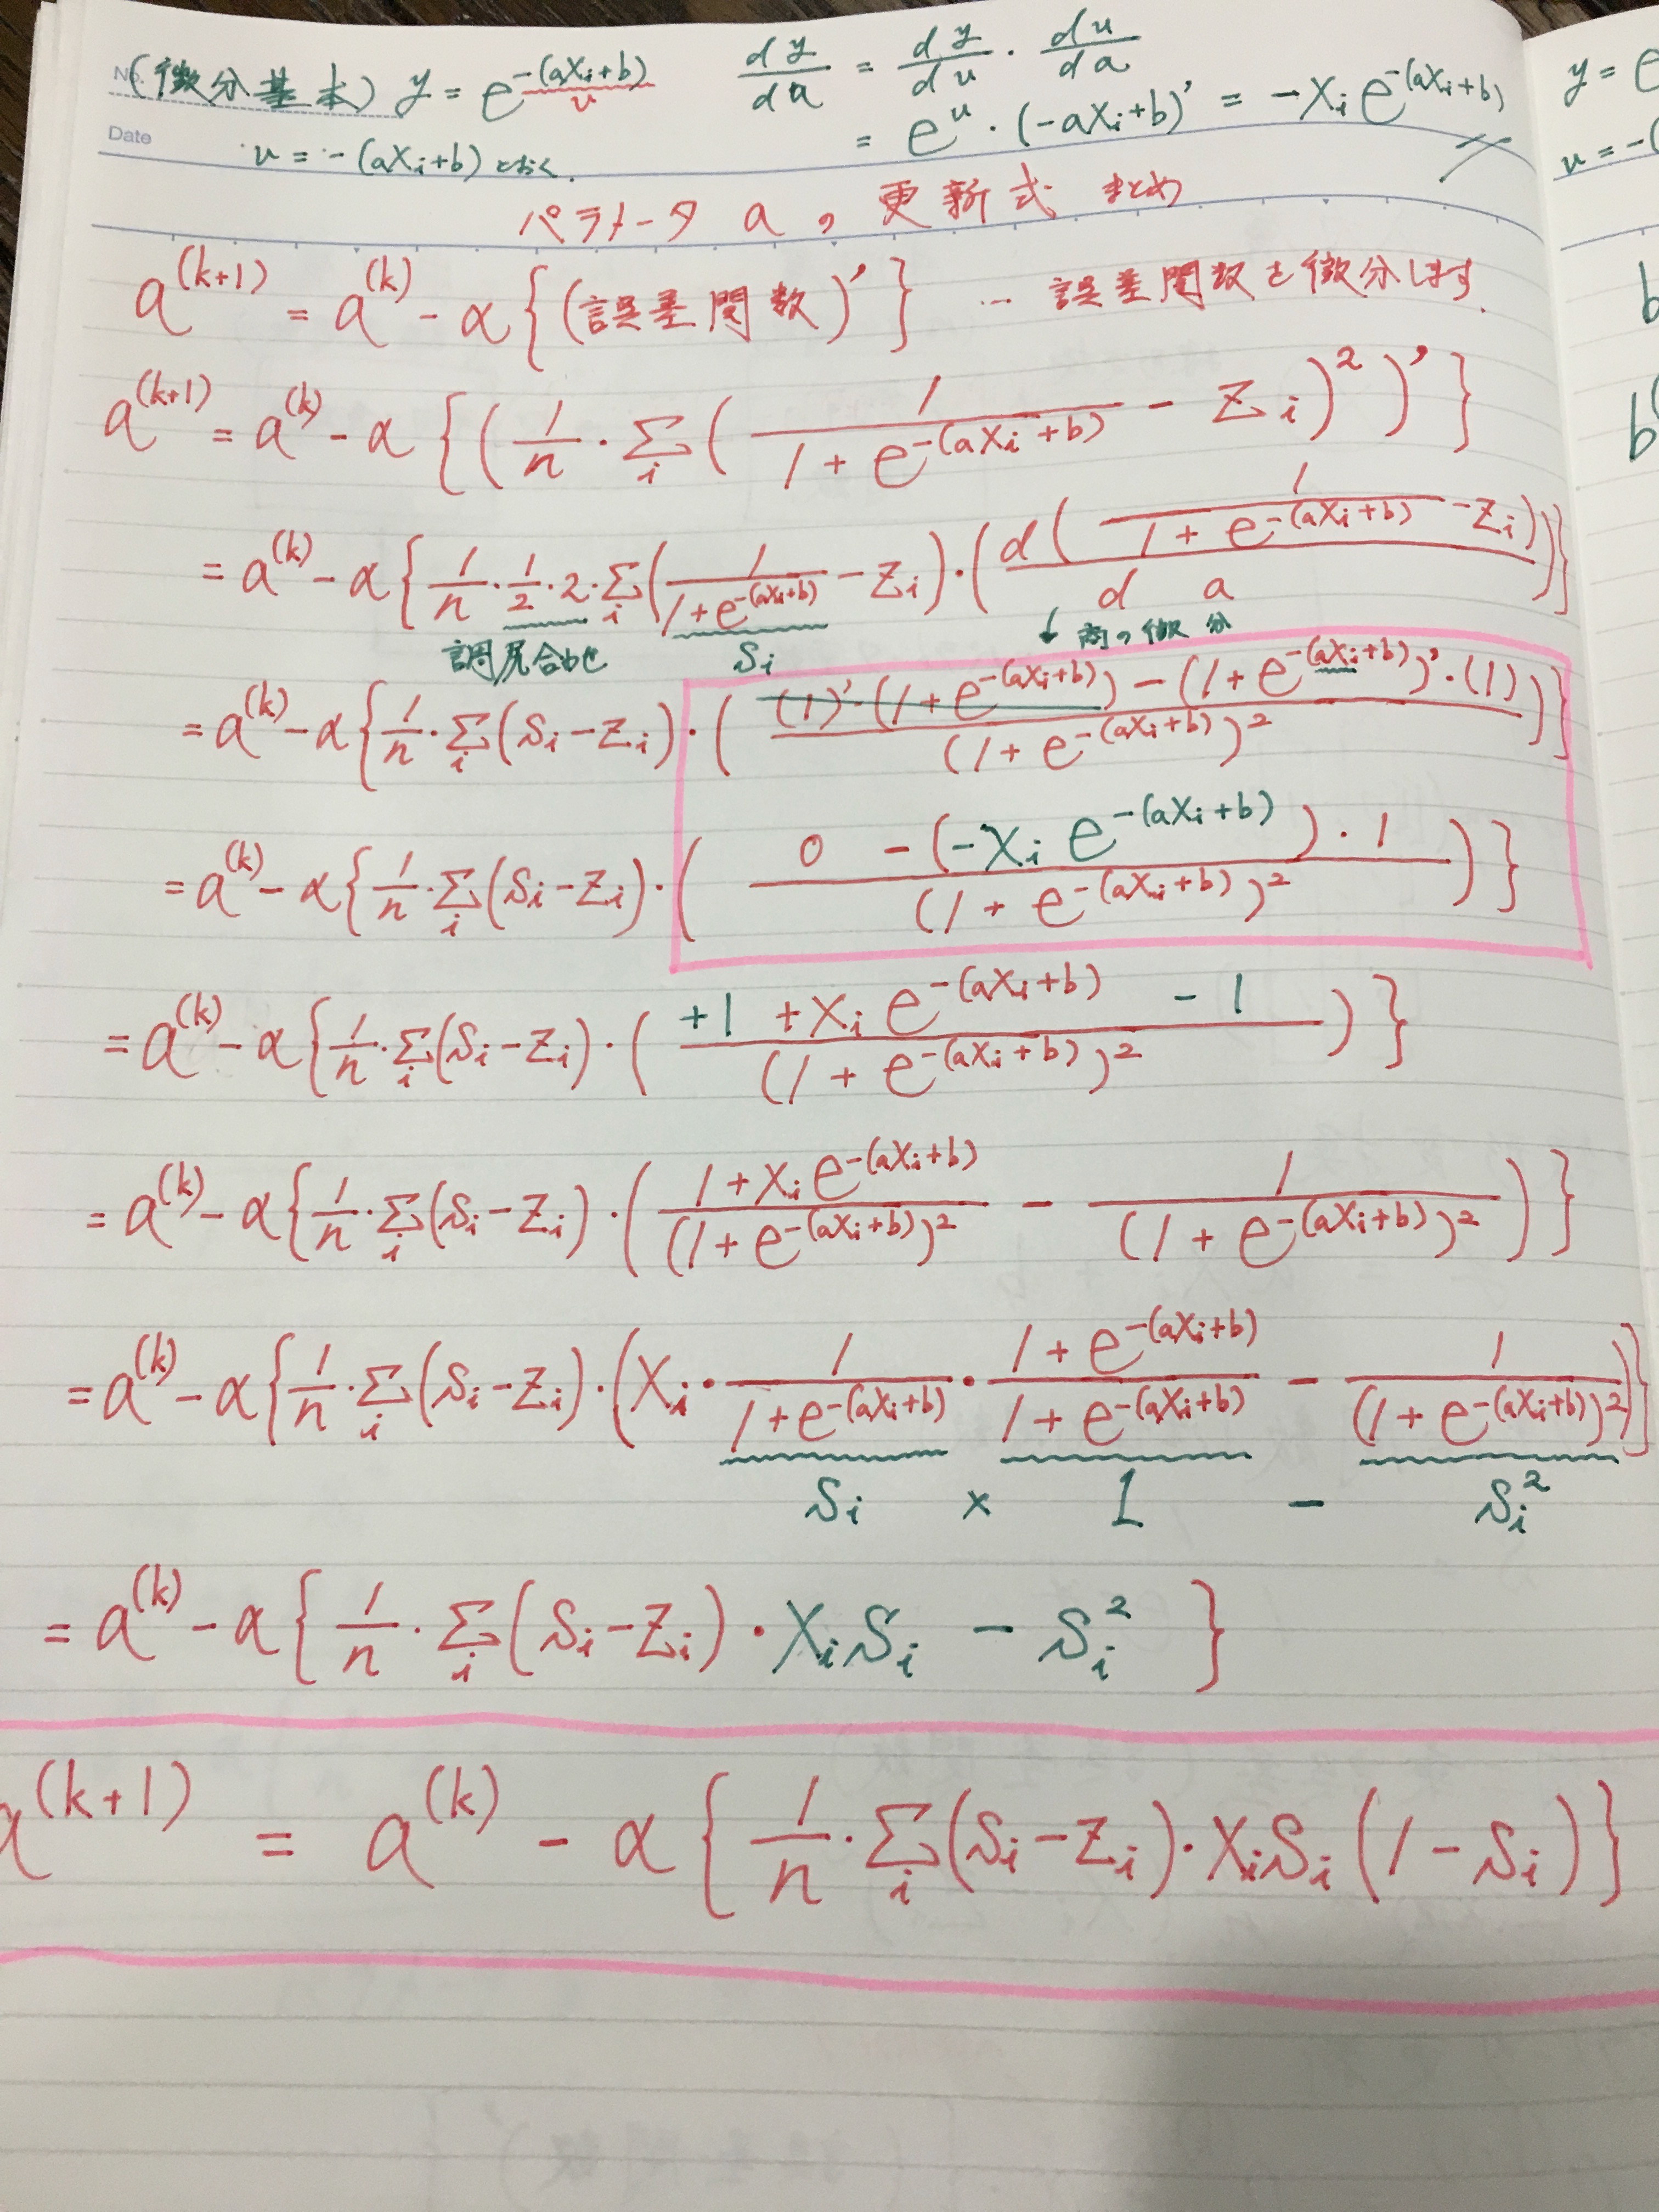 No.
(微分基本) y = e^{-(aXi+b)} dy/da = dy/du · du/da
u
Date
u = -(aXi+b) とおく.
= e^u · (-aXi+b)' = -Xi e^{-(aXi+b)}
パラメータ a の 更新式 まとめ
a^{(k+1)} = a^{(k)} - α{(誤差関数)'} … 誤差関数を微分します.
a^{(k+1)} = a^{(k)} - α{(1/n · Σ_i (1/(1+e^{-(aXi+b)}) - Zi)^2)'}
= a^{(k)} - α{1/n · 1/2 · 2 · Σ_i (1/(1+e^{-(aXi+b)}) - Zi) · (d(1/(1+e^{-(aXi+b)}) - Zi)/da)}
調尻合わせ Si ↓ 商の微分
= a^{(k)} - α{1/n · Σ_i (Si-Zi) · (((1)'·(1+e^{-(aXi+b)}) - (1+e^{-(aXi+b)})'·(1))/(1+e^{-(aXi+b)})^2)}
= a^{(k)} - α{1/n · Σ_i (Si-Zi) · ((0 - (-Xi e^{-(aXi+b)})·1)/(1+e^{-(aXi+b)})^2)}
= a^{(k)} - α{1/n · Σ_i (Si-Zi) · ((+1 +Xi e^{-(aXi+b)} -1)/(1+e^{-(aXi+b)})^2)}
= a^{(k)} - α{1/n · Σ_i (Si-Zi) · ((1+Xi e^{-(aXi+b)})/(1+e^{-(aXi+b)})^2 - 1/(1+e^{-(aXi+b)})^2)}
= a^{(k)} - α{1/n · Σ_i (Si-Zi) · (Xi · 1/(1+e^{-(aXi+b)}) · (1+e^{-(aXi+b)})/(1+e^{-(aXi+b)}) - 1/(1+e^{-(aXi+b)})^2)}
Si × 1 - Si^2
= a^{(k)} - α{1/n · Σ_i (Si-Zi) · XiSi - Si^2}
a^{(k+1)} = a^{(k)} - α{1/n · Σ_i (Si-Zi) · XiSi(1-Si)}
y = e
u = -(
b
b